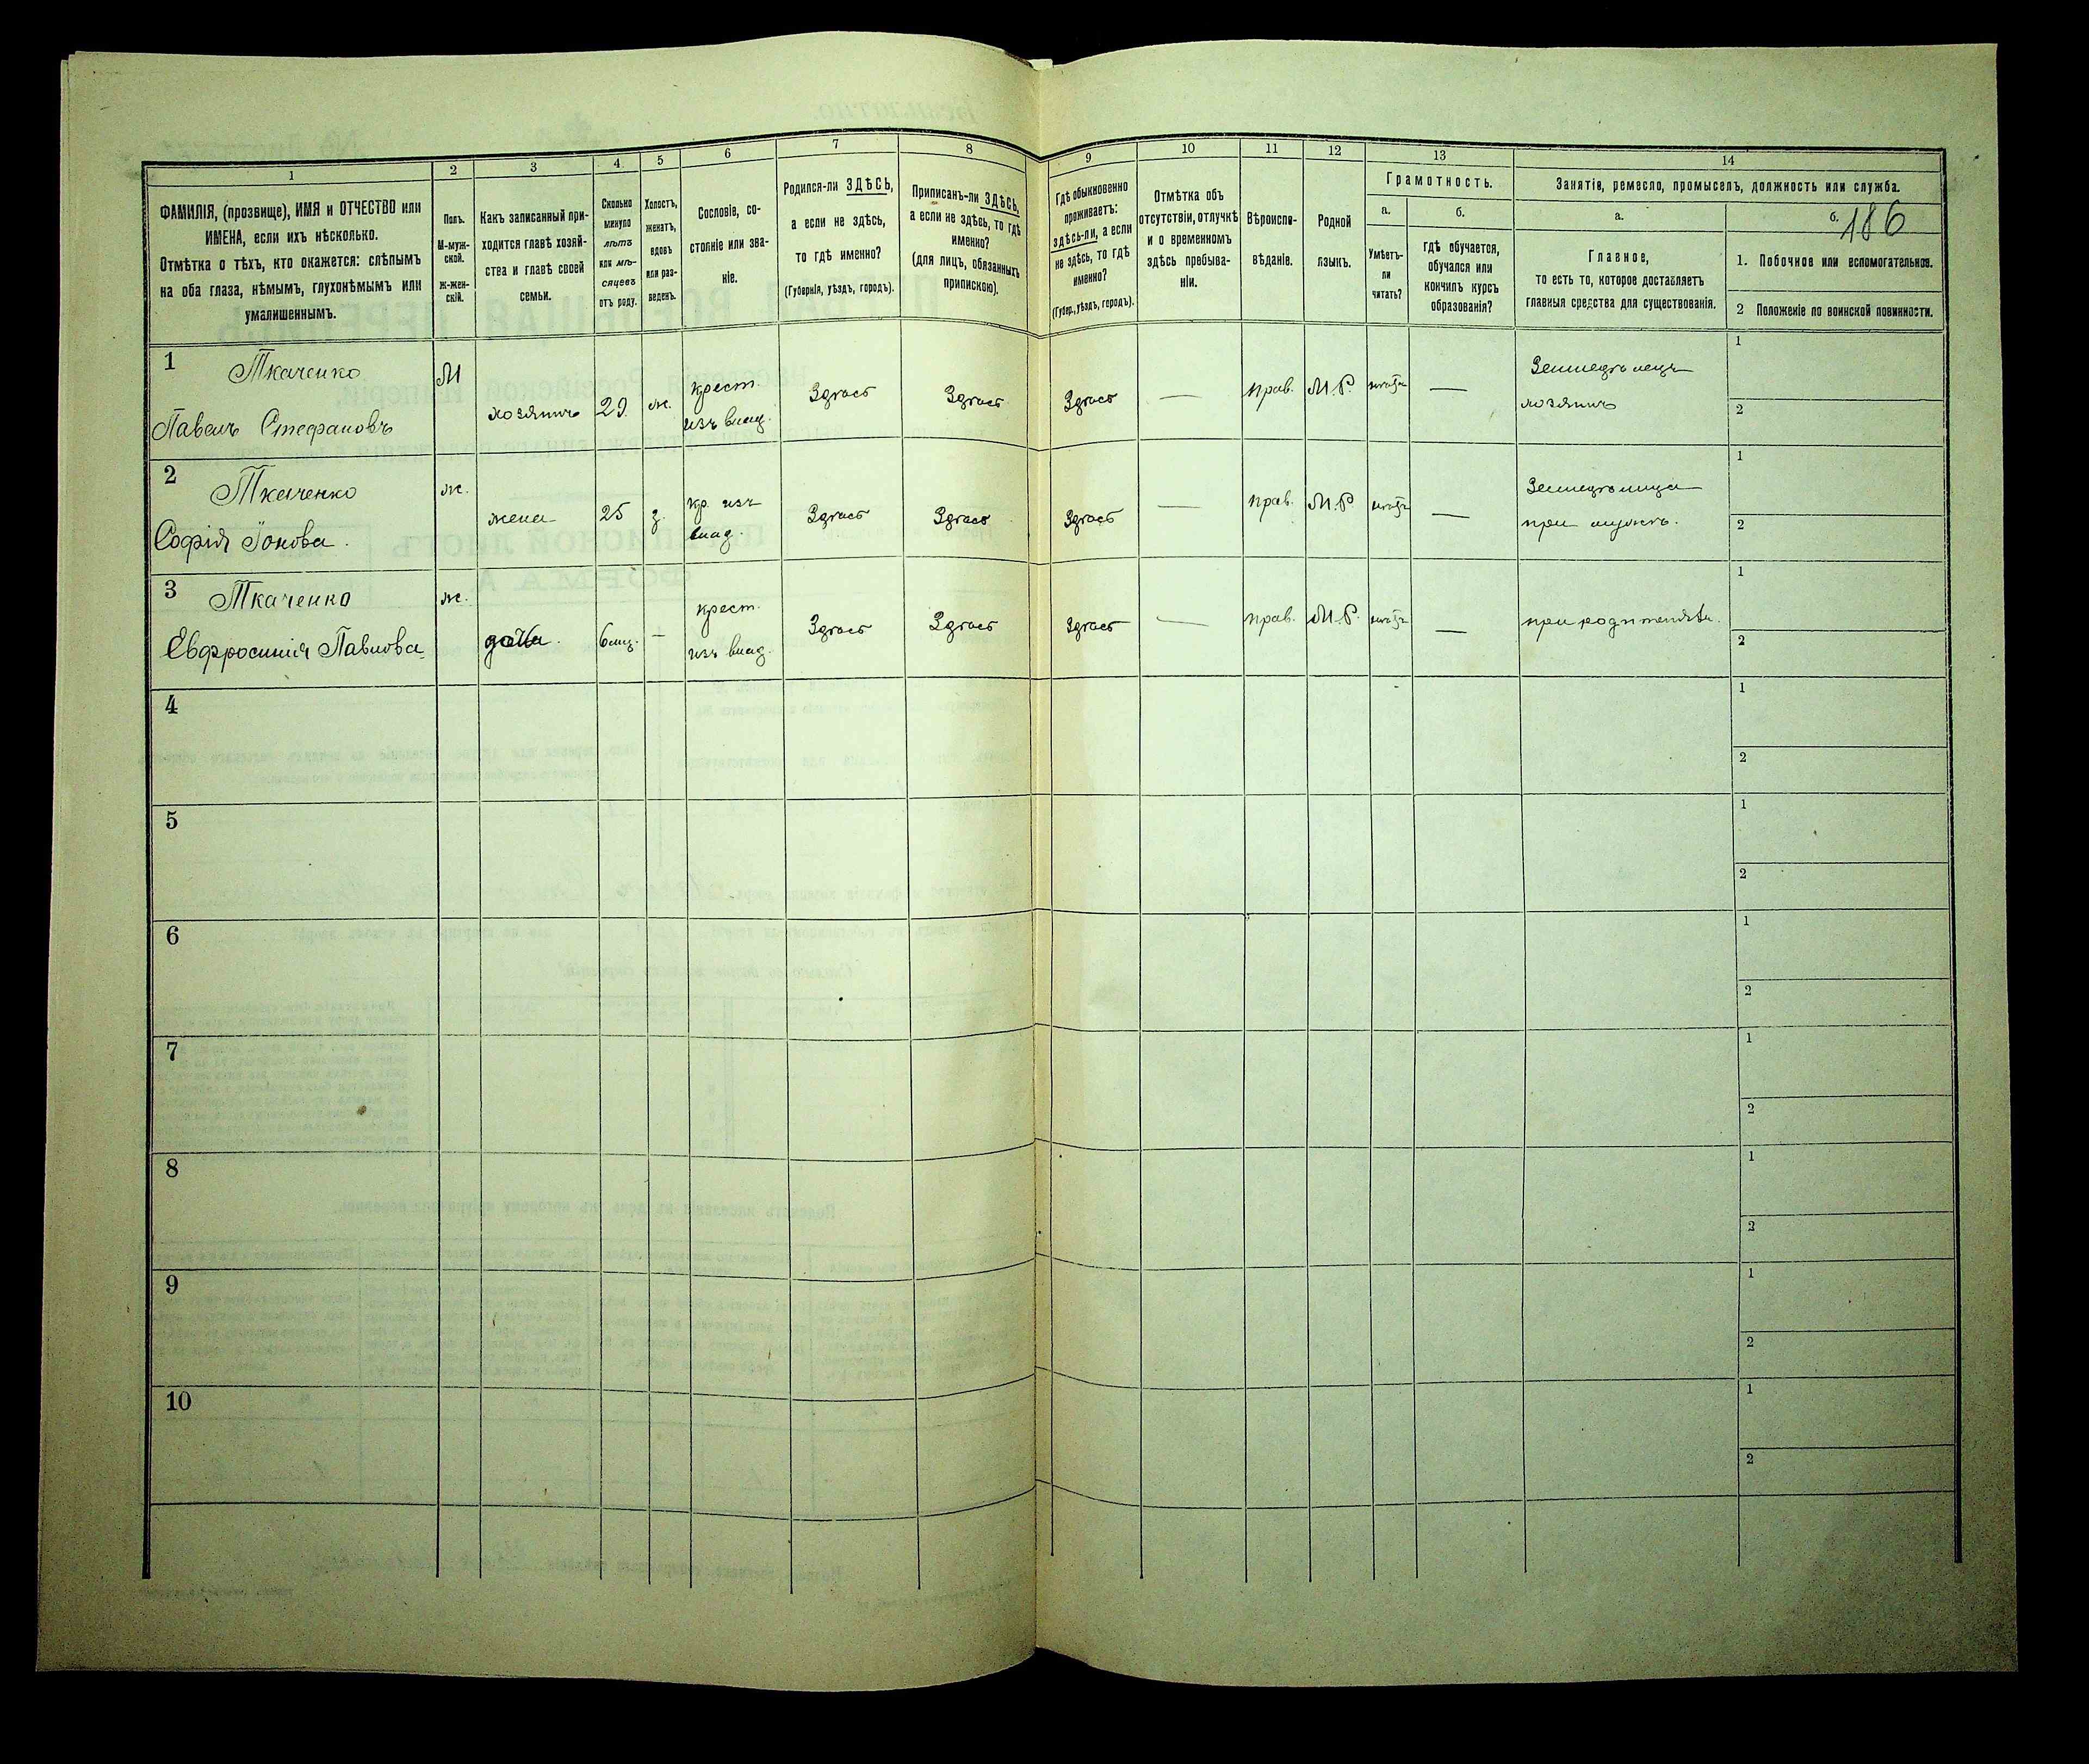 1
2
3
4
5
6
7
8
9
10
11
12
13
14
ФАМИЛІЯ, (прозвище), ИМЯ и ОТЧЕСТВО или
ИМЕНА, если ихъ нѣсколько.
Отмѣтка о тѣхъ, кто окажется: слѣпымъ
на оба глаза, нѣмымъ, глухонѣмымъ или
умалишеннымъ.
Полъ.
М-муж-
ской.
Ж-жен-
скій.
Какъ записанный при-
ходится главѣ хозяй-
ства и главѣ своей
семьи.
Сколько
минуло
лѣтъ
или мѣ-
сяцевъ
отъ роду.
Холостъ,
женатъ,
вдовъ
или раз-
веденъ.
Сословіе, со-
стояніе или зва-
ніе.
Родился-ли ЗДѢСЬ,
а если не здѣсь,
то гдѣ именно?
(Губернія, уѣздъ, городъ).
Приписанъ-ли ЗДѢСЬ,
а если не здѣсь, то гдѣ
именно?
(для лицъ, обязанныхъ
припискою).
Гдѣ обыкновенно
проживаетъ:
здѣсь-ли, а если
не здѣсь, то гдѣ
именно?
(Губер., уѣздъ, городъ).
Отмѣтка объ
отсутствіи, отлучкѣ
и о временномъ
здѣсь пребыва-
ніи.
Вѣроиспо-
вѣданіе.
Родной
языкъ.
Грамотность.
а.
Умѣетъ-
ли
читать?
б.
гдѣ обучается,
обучался или
кончилъ курсъ
образованія?
Занятіе, ремесло, промыселъ, должность или служба.
а.
Главное,
то есть то, которое доставляетъ
главныя средства для существованія.
б. 186
1. Побочное или вспомогательное.
2 Положеніе по воинской повинности.
1 Ткаченко
Павелъ Стефановъ
М
хозяинъ
29
ж.
крест.
изъ влад.
Здѣсь
Здѣсь
Здѣсь
—
прав.
М.Р.
—
Земледѣлецъ
хозяинъ
1
2
2 Ткаченко
Софія Іонова.
ж.
жена
25
з.
кр. изъ
влад.
Здѣсь
Здѣсь
Здѣсь
—
прав.
М.Р.
—
при мужѣ.
1
2
3 Ткаченко
Евфросинія Павлова
ж.
дочь.
6 мц.
—
крест.
изъ влад.
Здѣсь
Здѣсь
Здѣсь
—
прав.
М.Р.
—
при родителяхъ.
1
2
4
1
2
5
1
2
6
1
2
7
1
2
8
1
2
9
1
2
10
1
2